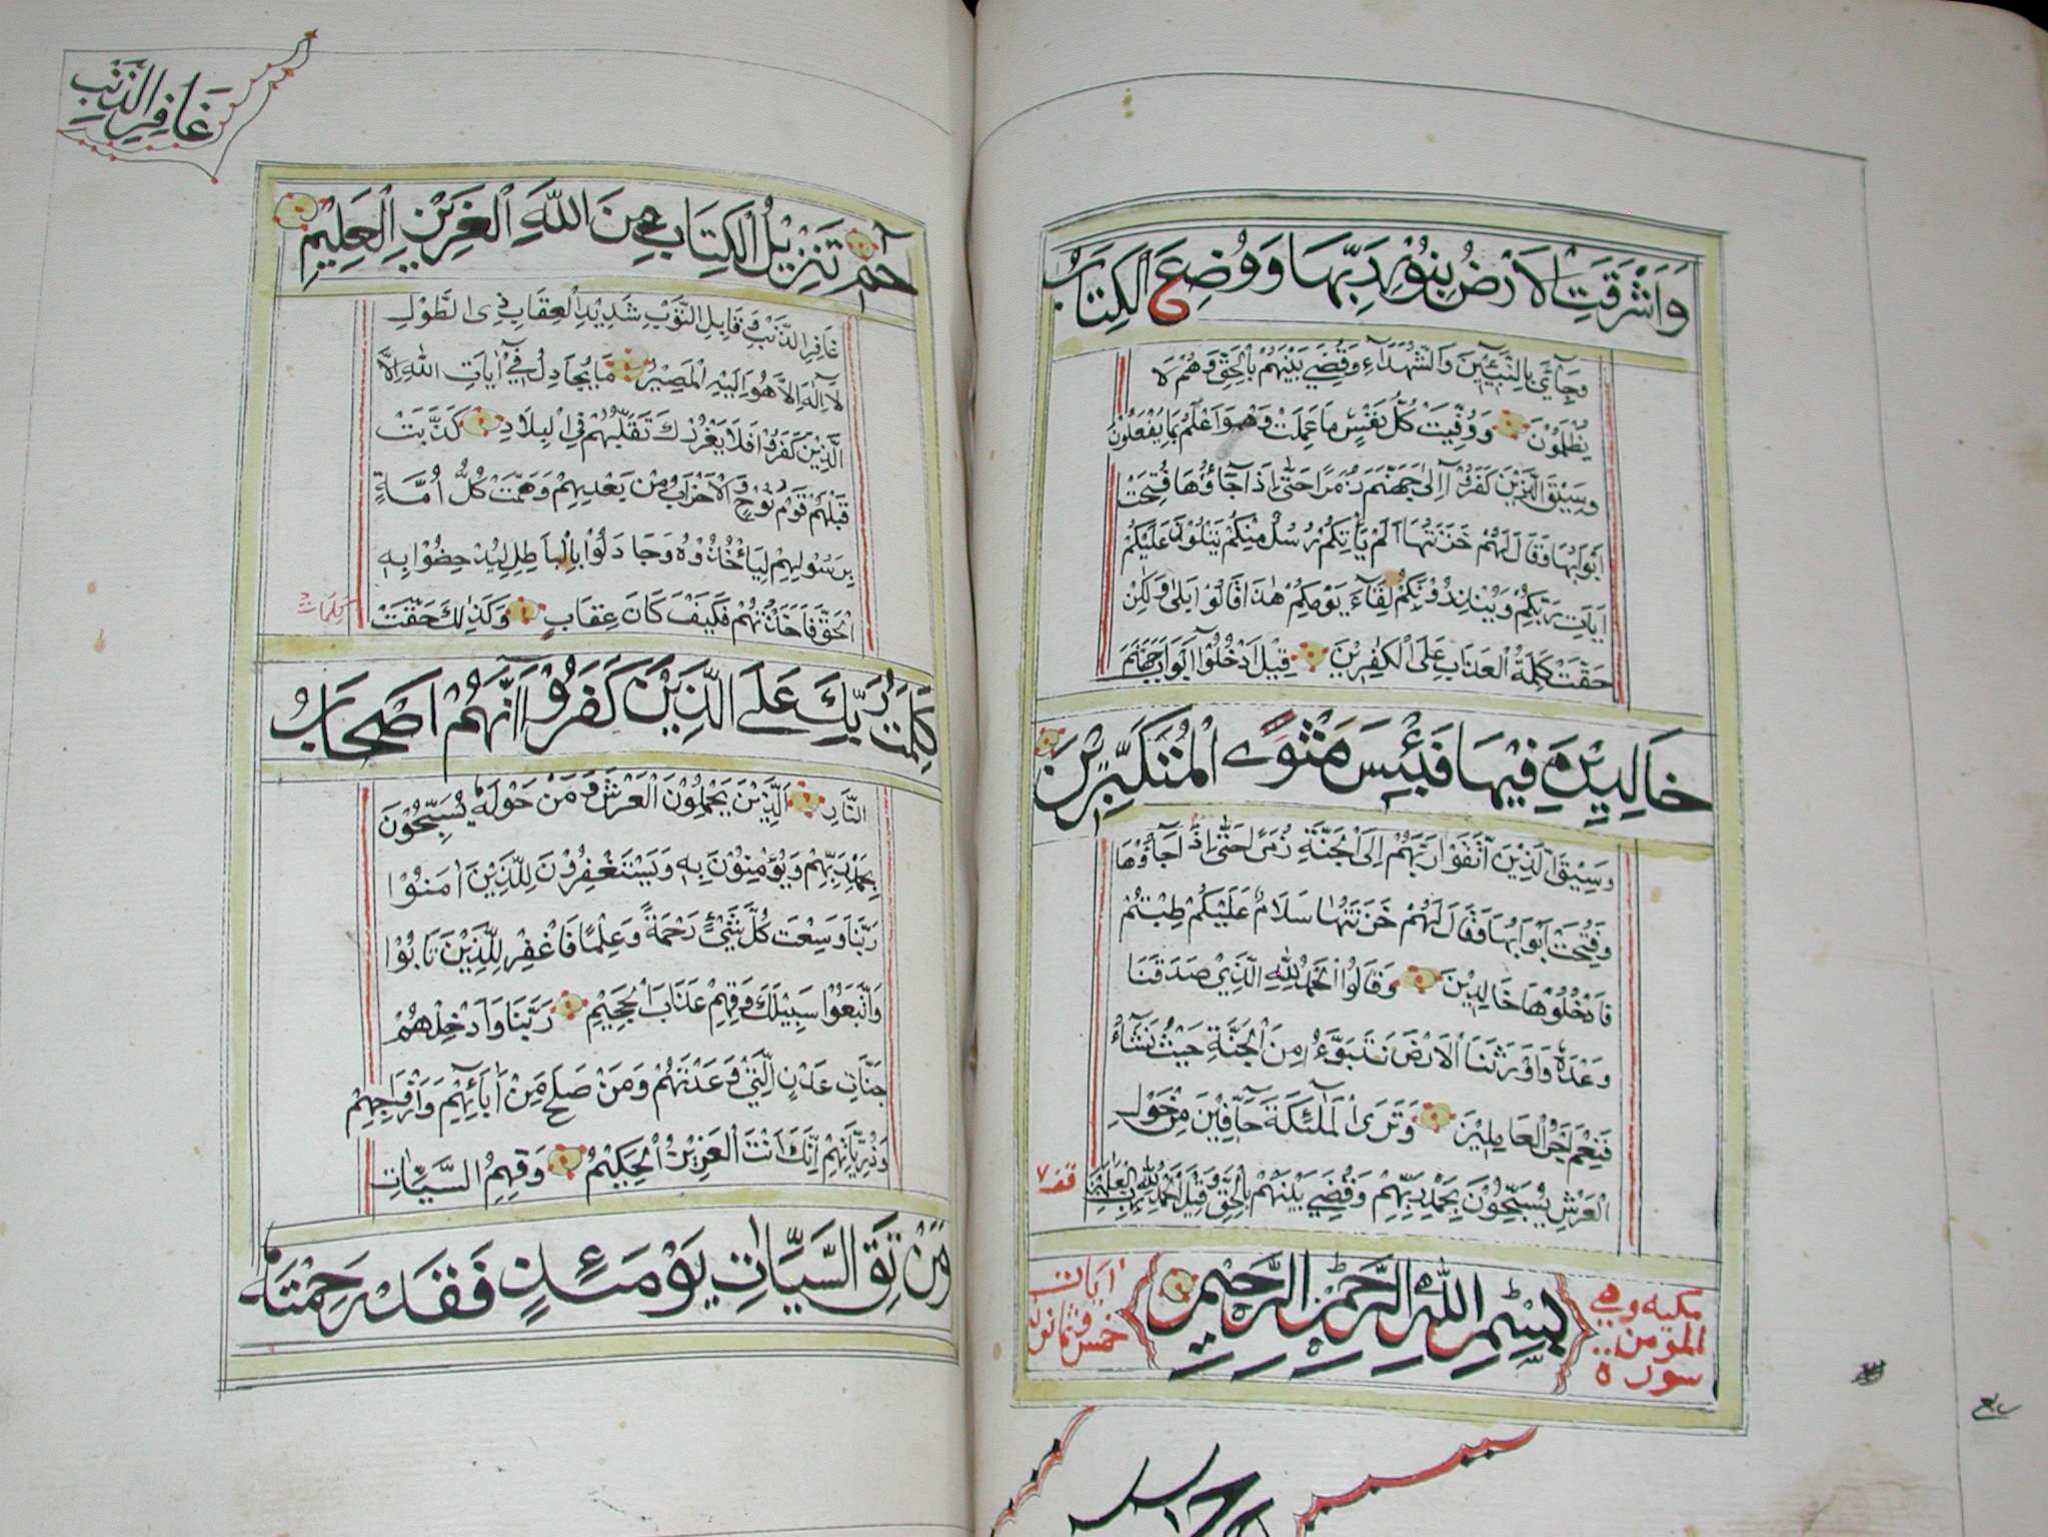 وَاَشْرَقَتِ الْاَرْضُ بِنُوْرِ رَبِّهَا وَوُضِعَ الْكِتَابُ
وَجِآئَ بِالنَّبِيّٖنَ وَالشُّهَدَآءِ وَقُضِيَ بَيْنَهُمْ بِالْحَقِّ وَهُمْ لَا
يُظْلَمُوْنَ وَوُفِّيَتْ كُلُّ نَفْسٍ مَا عَمِلَتْ وَهُوَ اَعْلَمُ بِمَا يَفْعَلُوْنَ
وَسِيْقَ الَّذِيْنَ كَفَرُوْآ اِلٰى جَهَنَّمَ زُمَرًا حَتّٰى اِذَا جَآؤُهَا فُتِحَتْ
اَبْوَابُهَا وَقَالَ لَهُمْ خَزَنَتُهَا اَلَمْ يَأْتِكُمْ رُسُلٌ مِنْكُمْ يَتْلُوْنَ عَلَيْكُمْ
اٰيَاتِ رَبِّكُمْ وَيُنْذِرُوْنَكُمْ لِقَآءَ يَوْمِكُمْ هٰذَا قَالُوْا بَلٰى وَلٰكِنْ
حَقَّتْ كَلِمَةُ الْعَذَابِ عَلَى الْكٰفِرِيْنَ قِيْلَ ادْخُلُوْآ اَبْوَابَ جَهَنَّمَ
خَالِدِيْنَ فِيْهَا فَبِئْسَ مَثْوَى الْمُتَكَبِّرِيْنَ
وَسِيْقَ الَّذِيْنَ اتَّقَوْا رَبَّهُمْ اِلَى الْجَنَّةِ زُمَرًا حَتّٰى اِذَا جَآؤُهَا
وَفُتِحَتْ اَبْوَابُهَا وَقَالَ لَهُمْ خَزَنَتُهَا سَلَامٌ عَلَيْكُمْ طِبْتُمْ
فَادْخُلُوْهَا خَالِدِيْنَ وَقَالُوا الْحَمْدُ لِلّٰهِ الَّذِيْ صَدَقَنَا
وَعْدَهُ وَاَوْرَثَنَا الْاَرْضَ نَتَبَوَّءُ مِنَ الْجَنَّةِ حَيْثُ نَشَآءُ
فَنِعْمَ اَجْرُ الْعَامِلِيْنَ وَتَرَى الْمَلٰٓئِكَةَ حَآفِّيْنَ مِنْ حَوْلِ
الْعَرْشِ يُسَبِّحُوْنَ بِحَمْدِ رَبِّهِمْ وَقُضِيَ بَيْنَهُمْ بِالْحَقِّ وَقِيْلَ الْحَمْدُ لِلّٰهِ رَبِّ الْعٰلَمِيْنَ
سورة المؤمن مكيه وهي
بِسْمِ اللّٰهِ الرَّحْمٰنِ الرَّحِيْمِ
خمس وثمانون اٰيات
غَافِرِ الذَّنْبِ
حٰمٓ تَنْزِيْلُ الْكِتَابِ مِنَ اللّٰهِ الْعَزِيْزِ الْعَلِيْمِ
غَافِرِ الذَّنْبِ وَقَابِلِ التَّوْبِ شَدِيْدِ الْعِقَابِ ذِى الطَّوْلِ
لَآ اِلٰهَ اِلَّا هُوَ اِلَيْهِ الْمَصِيْرُ مَا يُجَادِلُ فِيْٓ اٰيَاتِ اللّٰهِ اِلَّا
الَّذِيْنَ كَفَرُوْا فَلَا يَغْرُرْكَ تَقَلُّبُهُمْ فِى الْبِلَادِ كَذَّبَتْ
قَبْلَهُمْ قَوْمُ نُوْحٍ وَالْاَحْزَابُ مِنْ بَعْدِهِمْ وَهَمَّتْ كُلُّ اُمَّةٍ
بِرَسُوْلِهِمْ لِيَأْخُذُوْهُ وَجَادَلُوْا بِالْبَاطِلِ لِيُدْحِضُوْا بِهِ
الْحَقَّ فَاَخَذْتُهُمْ فَكَيْفَ كَانَ عِقَابِ وَكَذٰلِكَ حَقَّتْ
كَلِمَاتُ
كَلِمَتُ رَبِّكَ عَلَى الَّذِيْنَ كَفَرُوْآ اَنَّهُمْ اَصْحَابُ
النَّارِ اَلَّذِيْنَ يَحْمِلُوْنَ الْعَرْشَ وَمَنْ حَوْلَهُ يُسَبِّحُوْنَ
بِحَمْدِ رَبِّهِمْ وَيُؤْمِنُوْنَ بِهِ وَيَسْتَغْفِرُوْنَ لِلَّذِيْنَ اٰمَنُوْا
رَبَّنَا وَسِعْتَ كُلَّ شَيْئٍ رَحْمَةً وَعِلْمًا فَاغْفِرْ لِلَّذِيْنَ تَابُوْا
وَاتَّبَعُوْا سَبِيْلَكَ وَقِهِمْ عَذَابَ الْجَحِيْمِ رَبَّنَا وَاَدْخِلْهُمْ
جَنَّاتِ عَدْنٍ الَّتِيْ وَعَدْتَهُمْ وَمَنْ صَلَحَ مِنْ اٰبَآئِهِمْ وَاَزْوَاجِهِمْ
وَذُرِّيَّاتِهِمْ اِنَّكَ اَنْتَ الْعَزِيْزُ الْحَكِيْمُ وَقِهِمُ السَّيِّئَاتِ
وَمَنْ تَقِ السَّيِّاٰتِ يَوْمَئِذٍ فَقَدْ رَحِمْتَهُ